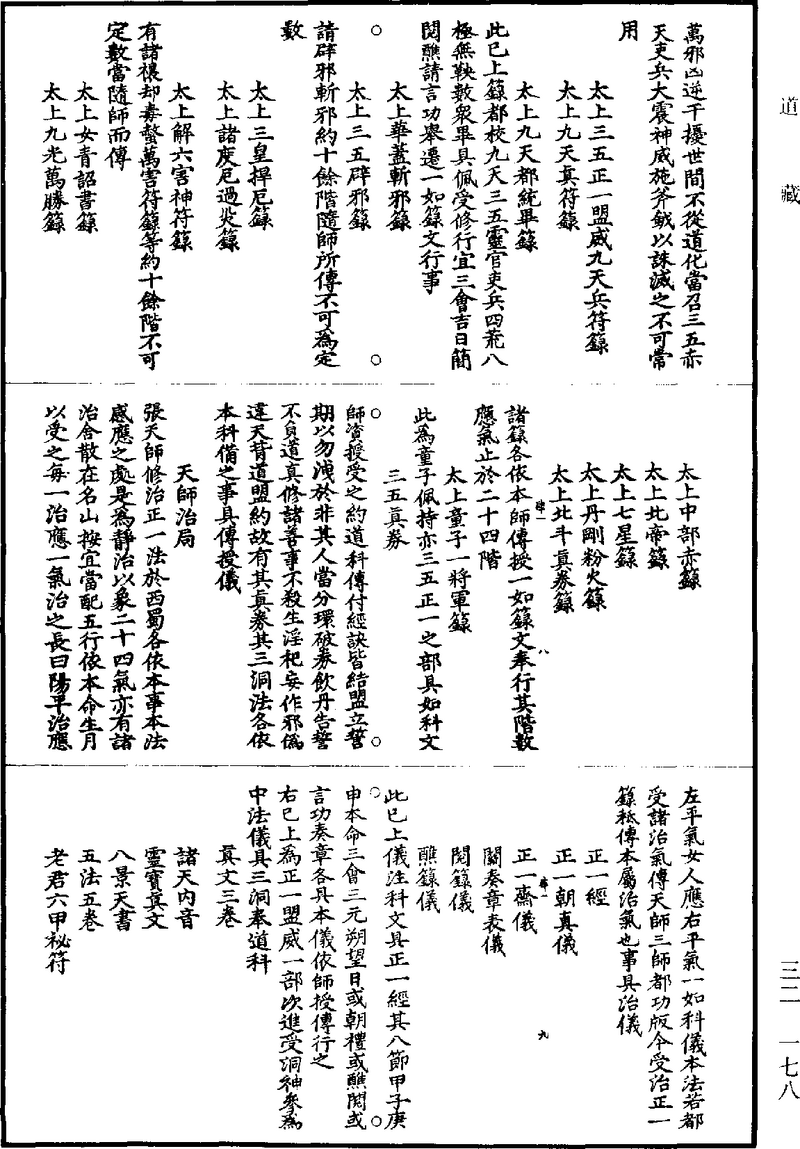 道藏
萬邪凶逆干擾世間不從道化當召三五赤
天吏兵大震神威施斧鉞以誅滅之不可常
用
太上三五正一盟威九天兵符籙
太上九天真符籙
太上九天都統畢籙
此已上籙都校九天三五靈官吏兵四兗八
極無鞅數衆畢具佩受修行宜三會吉日簡
閱醮請言功舉遷一如籙文行事
太上華蓋斬邪籙
太上三五辟邪籙
請辟邪斬邪約十餘階隨師所傳不可為定
數
太上三皇捍厄籙
太上諸度厄過災籙
太上解六害神符籙
有諸禳却毒螫萬害符籙等約十餘階不可
定數當隨師而傳
太上女青詔書籙
太上九光萬勝籙
太上中部赤籙
太上北帝籙
太上七星籙
太上丹剛粉火籙
太上北斗真券籙
諸籙各依本師傳授一如籙文奉行其階數
八
應氣止於二十四階
太上童子一將軍籙
此為童子佩持亦三五正一之部具如科文
三五真券
師資授受之約道科傳付經訣皆結盟立誓
期以勿洩於非其人當分環破券飲丹告誓
不負道真修諸善事不殺生淫祀妄作邪偽
違天背道盟約故有其真券其三洞法各依
本科備之事具傳授儀
天師治局
張天師修治正一法於西蜀各依本事本法
感應之處是為靜治以象二十四氣亦有諸
治舍散在名山按宜當配五行依本命生月
以受之每一治應一氣治之長曰陽平治應
左平氣女人應右平氣一如科儀本法若都
受諸治氣傳天師三師都功版今受治正一
籙祗傳本屬治氣也事具治儀
正一經
正一朝真儀
正一齋儀
九
關奏章表儀
閱籙儀
醮籙儀
此已上儀注科文具正一經其八節甲子庚
申本命三會三元朔望日或朝禮或醮閱或
言功奏章各具本儀依師授傳行之
右已上為正一盟威一部次進受洞神參為
中法儀具三洞奉道科
真文三卷
諸天內音
靈寶真文
八景天書
五法五卷
老君六甲祕符
三二 一七八